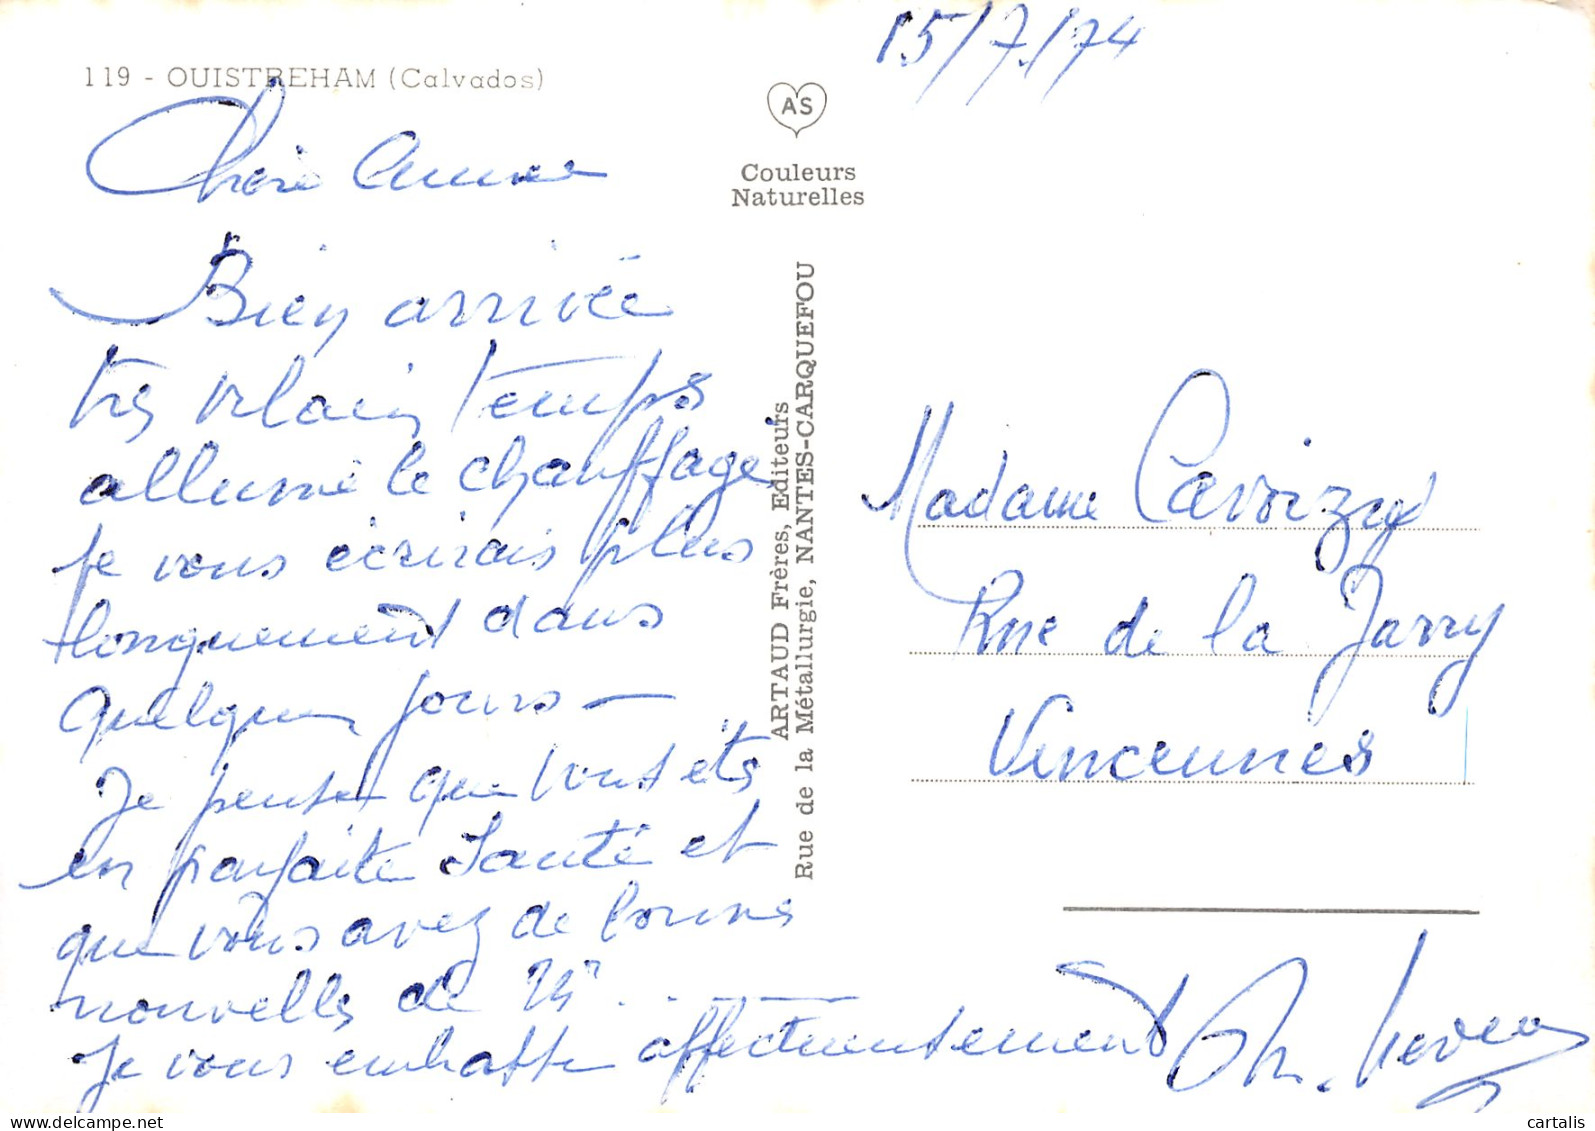 119 - OUISTREHAM (Calvados)
15/7/74
AS
Couleurs
Naturelles
Chère Anna
Bien arrivée
très vilain temps
allumé le chauffage
je vous écrirais plus
longuement dans
quelques jours —
Je pense que vous êts
en parfaite santé et
que vous avez de bonnes
nouvelles de Mr . . . —
Je vous embrasse affectueusement
ARTAUD Frères, Editeurs
Rue de la Métallurgie, NANTES-CARQUEFOU
Madame Cavoizy
Rue de la Jarry
Vincennes
cartalis